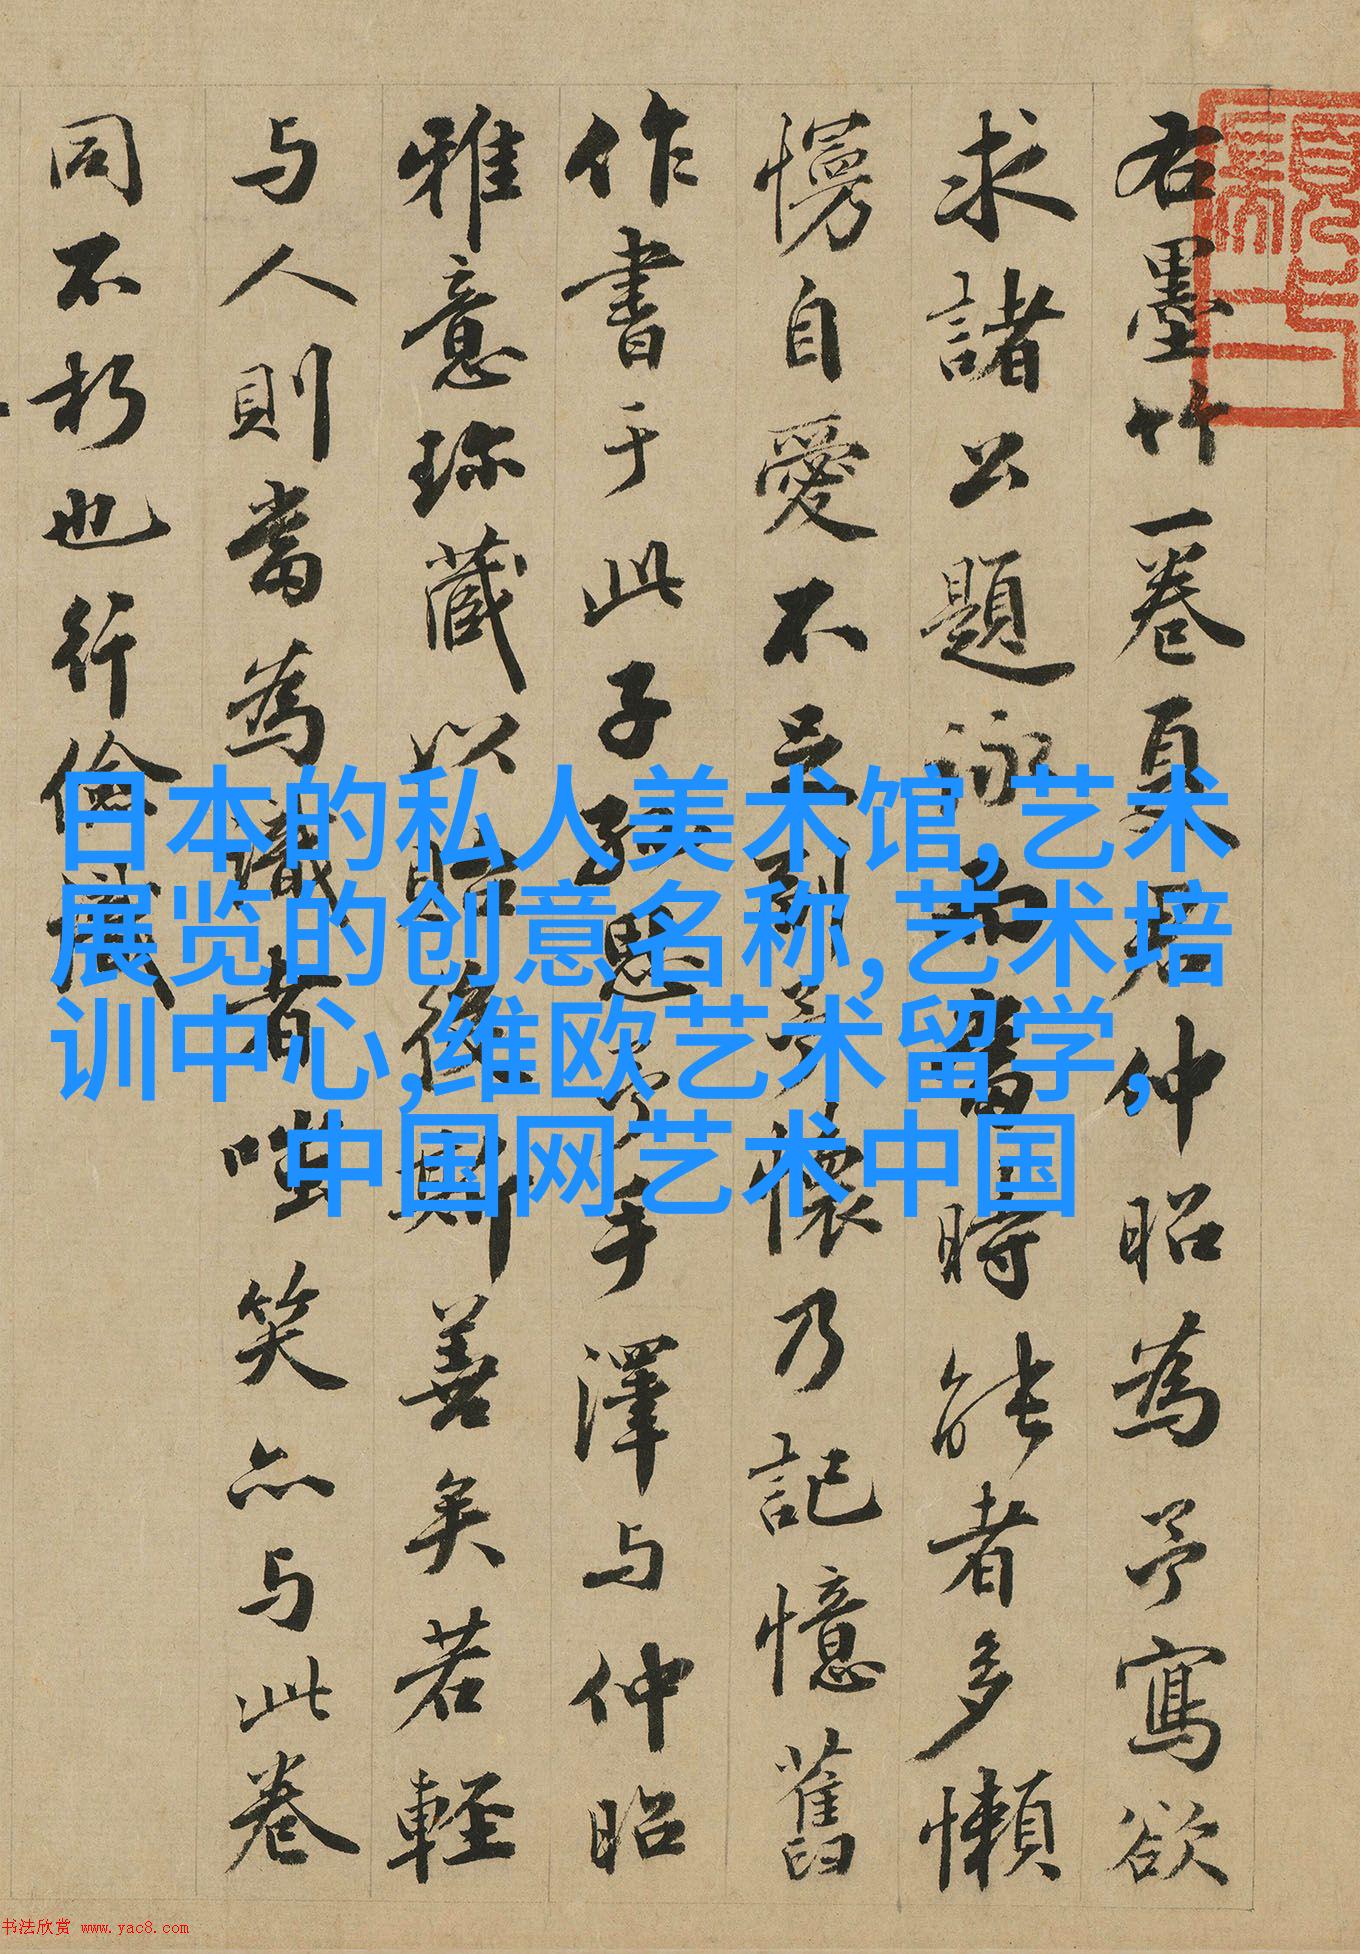 右墨竹一卷夏君仲昭為予寫欲
求諸公題詠而當時能者多懶
慢自愛不至到予懷乃記憶舊
作書于此子孫懸予手澤与仲昭
雅意珎藏以貽後斯善矣若輕
与人則當為識者嗤笑亦与此卷
同不朽也行儉識
日本的私人美术馆,艺术
展览的创意名称,艺术培
训中心,维欧艺术留学,
中国网艺术中国
书法欣赏 www.yac8.com